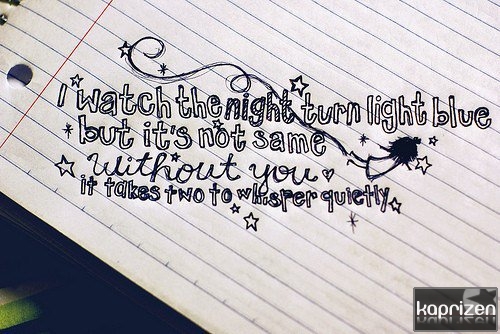 I watch the night turn light blue
but it's not same
without you
it takes two to whisper quietly
kaprizen